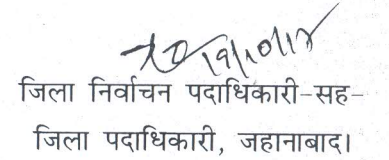 19/10/18
जिला निर्वाचन पदाधिकारी-सह-
जिला पदाधिकारी, जहानाबाद।